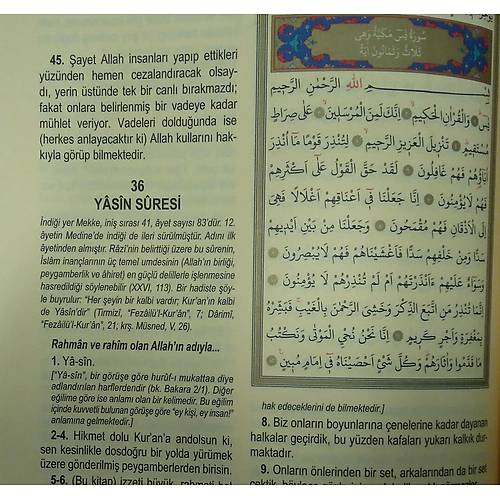 45. Şayet Allah insanları yapıp ettikleri
yüzünden hemen cezalandıracak olsay-
dı, yerin üstünde tek bir canlı bırakmazdı;
fakat onlara belirlenmiş bir vadeye kadar
mühlet veriyor. Vadeleri dolduğunda ise
(herkes anlayacaktır ki) Allah kullarını hak-
kıyla görüp bilmektedir.
36
YÂSÎN SÛRESİ
İndiği yer Mekke, iniş sırası 41, âyet sayısı 83'dür. 12.
âyetin Medine'de indiği de ileri sürülmüştür. Adını ilk
âyetinden almıştır. Râzî'nin belirttiği üzere bu sûrenin,
İslâm inançlarının üç temel umdesinin (Allah'ın birliği,
peygamberlik ve âhiret) en güçlü delillerle işlenmesine
hasredildiği söylenebilir (XXVI, 113). Bir hadiste şöy-
le buyrulur: "Her şeyin bir kalbi vardır; Kur'an'ın kalbi
de Yâsîn'dir" (Tirmizî, "Fezâilü'l-Kur'ân", 7; Dârimî,
"Fezâilü'l-Kur'ân", 21; krş. Müsned, V, 26).
Rahmân ve rahîm olan Allah'ın adıyla...
1. Yâ-sîn.
["Yâ-sîn", bir görüşe göre hurûf-ı mukattaa diye
adlandırılan harflerdendir (bk. Bakara 2/1). Diğer
eğilime göre ise anlamı olan bir kelimedir. Bu eğilim
içinde kuvvetli bulunan görüşe göre "ey kişi, ey insan!"
anlamına gelmektedir.]
2-4. Hikmet dolu Kur'an'a andolsun ki,
sen kesinlikle dosdoğru bir yolda yürümek
üzere gönderilmiş peygamberlerden birisin.
5-6. (Bu kitap) izzeti büyük, rahmeti bol
سُورَةُ يٰسٓ مَكِّيَّةٌ وَهِيَ
ثَلَاثٌ وَثَمَانُونَ اٰيَةً
بِسْــــمِ اللّٰهِ الرَّحْمٰنِ الرَّحِيمِ
يٰسٓ وَالْقُرْاٰنِ الْحَكِيمِ اِنَّكَ لَمِنَ الْمُرْسَلِينَ عَلٰى صِرَاطٍ
مُسْتَقِيمٍ تَنْزِيلَ الْعَزِيزِ الرَّحِيمِ لِتُنْذِرَ قَوْمًا مَٓا اُنْذِرَ
اٰبَٓاؤُهُمْ فَهُمْ غَافِلُونَ لَقَدْ حَقَّ الْقَوْلُ عَلٰٓى اَكْثَرِهِمْ
فَهُمْ لَا يُؤْمِنُونَ اِنَّا جَعَلْنَا فٓى اَعْنَاقِهِمْ اَغْلَالًا فَهِىَ
اِلَى الْاَذْقَانِ فَهُمْ مُقْمَحُونَ وَجَعَلْنَا مِنْ بَيْنِ اَيْدِيهِمْ
سَدًّا وَمِنْ خَلْفِهِمْ سَدًّا فَاَغْشَيْنَاهُمْ فَهُمْ لَا يُبْصِرُونَ
وَسَوَٓاءٌ عَلَيْهِمْ ءَاَنْذَرْتَهُمْ اَمْ لَمْ تُنْذِرْهُمْ لَا يُؤْمِنُونَ
اِنَّمَا تُنْذِرُ مَنِ اتَّبَعَ الذِّكْرَ وَخَشِىَ الرَّحْمٰنَ بِالْغَيْبِ فَبَشِّرْهُ
بِمَغْفِرَةٍ وَاَجْرٍ كَرِيمٍ اِنَّا نَحْنُ نُحْيِ الْمَوْتٰى وَنَكْتُبُ
مَا قَدَّمُوا وَاٰثَارَهُمْ وَكُلَّ شَيْءٍ اَحْصَيْنَاهُ فٓى اِمَامٍ مُبِينٍ
hak edeceklerini de bilmektedir.]
8. Biz onların boyunlarına çenelerine kadar dayanan
halkalar geçirdik, bu yüzden kafaları yukarı kalkık dur-
maktadır.
9. Onların önlerinden bir set, arkalarından da bir set